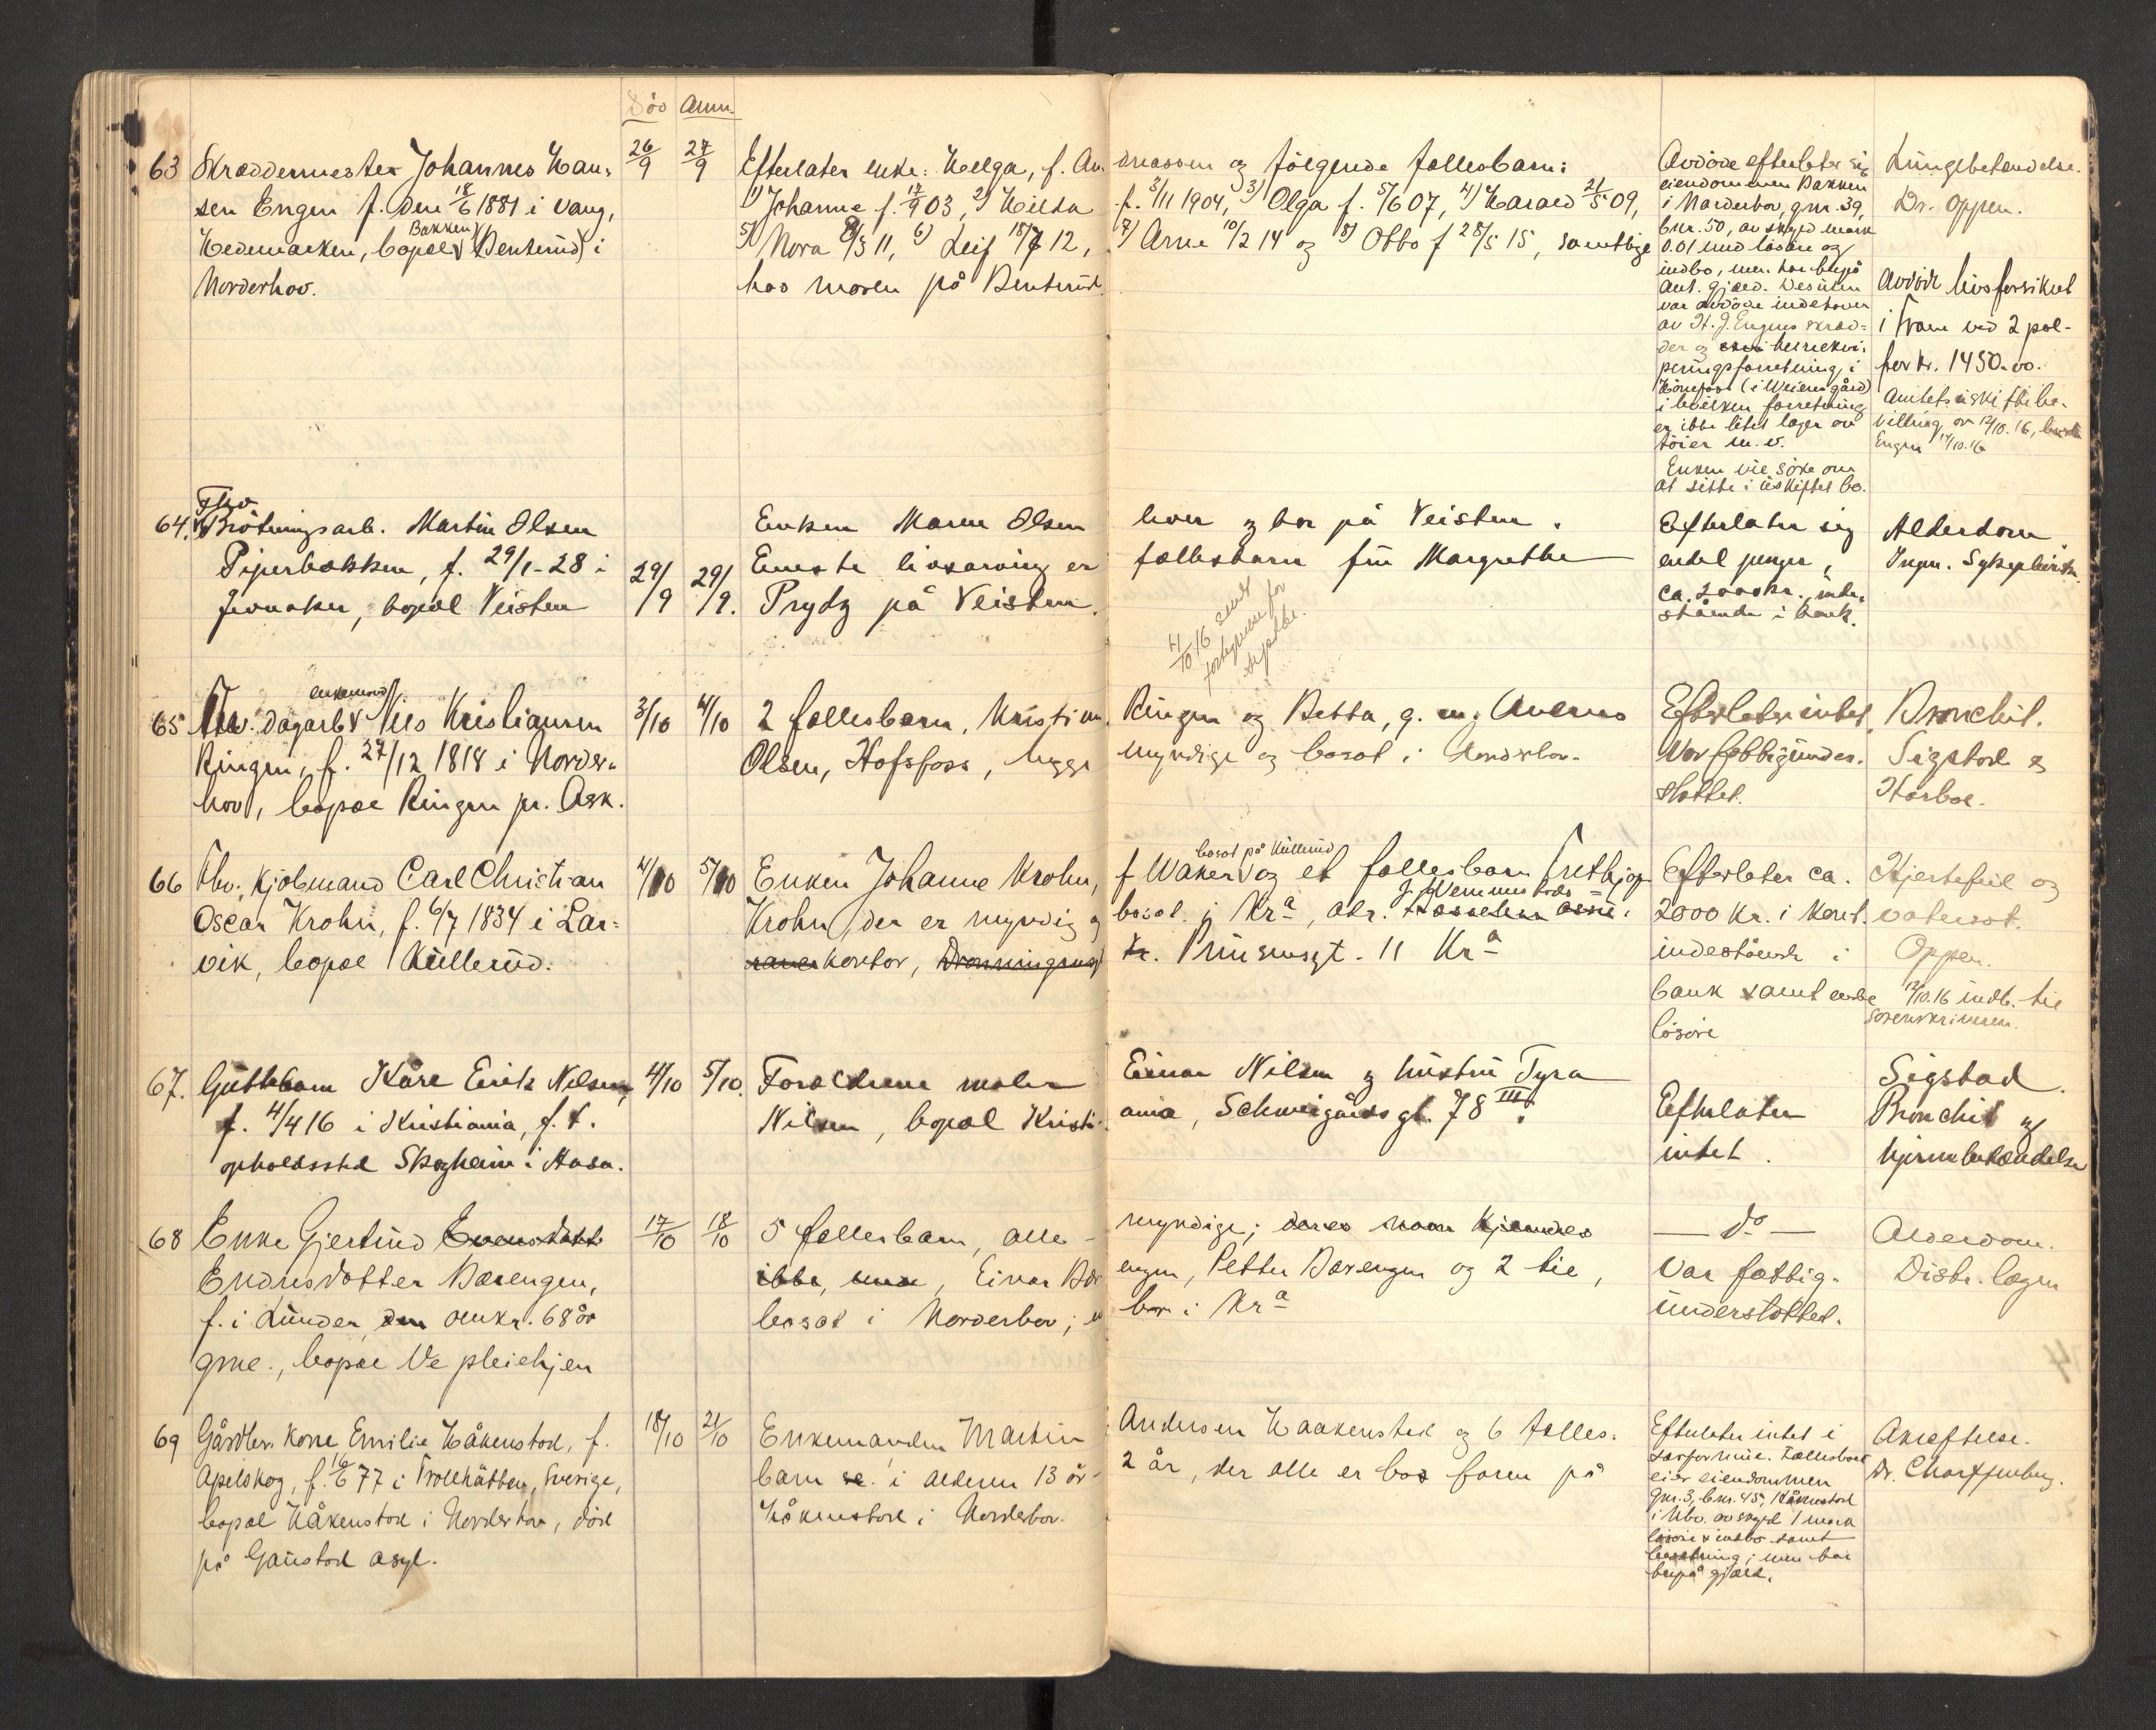 Död Anm.
63 Skræddermester Johannes Han- 26/9 27/9 Efterlater enke: Helga, f. An- dreassen og følgende fællesbarn:
sen Engen f. den 18/6 1881 i Vang, 1) Johanne f. 17/9 03, 2) Hilda f. 3/11 1904, 3) Olga f. 5/6 07, 4) Harald 21/5 09,
Bakken
Hedemarken, bopæl (Benterud) i 5) Nora 8/3 11, 6) Leif 18/7 12, 7) Arne 10/2 14 og 8) Otto f 28/5 15, samtlige
Norderhov. hos moren på Benterud.
Avdøde efterlater sig
eiendommen Bakken
i Norderhov, gnr. 39,
bnr. 50, av skyld mark
0.01 med løsøre og
indbo, men har endel
ant. gjæld. Desuten
var avdøde indehaver
av H. J. Engens skræd-
der og herreekvi-
peringsforretning i
Hønefoss (i Weiens gård)
i hvilken forretning
er ikke litet lager av
tøier m. v.
Enken vil søke om
at sitte i uskiftet bo.
Lungebetændelse.
Dr. Oppen.
Avdøde livsforsikret
i Fram ved 2 pol-
for kr. 1450.00.
Amtets uskiftebe-
villing av 12/10.16,
Engen 17/10.16
Fhv.
64. Brøtningsarb. Martin Olsen Enken Maren Olsen lever og bor på Veisten.
Piperbakken, f. 29/1-28 i 29/9 29/9. Eneste livsarving er fællesbarn fru Margrethe
Jevnaker, bopæl Veisten Prydz på Veisten.
4/10 16 sendt
forlegnelse for
Efterlater sig
endel penger,
ca. 2000 kr., inde-
stående i bank.
Alderdom
Ingen. Sykepleierske.
enkemand
65 Fhv. dagarb. Nils Kristiansen 3/10 4/10 2 fællesbarn, Kristian Ringen og Betta, g. m. Anders
Ringen, f. 27/12 1818 i Norder- Olsen, Hofsfoss, begge myndige og bosat i Norderhov.
hov, bopæl Ringen pr. Ask.
Efterlater intet.
Var fattigunder-
støttet.
Bronchit.
Sigstad &
Harboe.
66 Fhv. Kjøbmand Carl Christian 4/10 5/10 Enken Johanne Krohn, f Waker bosat på Kullerud og et fællesbarn Frithjof
Oscar Krohn, f. 6/7 1834 i Lar- Krohn, der er myndig og bosat i Kra, adr. assu-
vik, bopæl Kullerud. kontor, Dronningensgt Prinsensgt. 11 Kra
Efterlater ca.
2000 kr. i kont.
indestående i
bank samt endel
løsøre
Hjertefeil og
vatersot.
Oppen.
12/10.16 indb. til
sorenskriveren.
67. Guttebarn Kåre Erik Nilsen, 4/10 5/10. Forældrene maler Einar Nilsen og hustru Tyra
f. 4/4 16 i Kristiania, f. t. Nilsen, bopæl Kristi- ania, Schweigårds gt. 78 III.
opholdssted Skogheim i Aadal.
Efterlater
intet.
Sigstad.
Bronchit og
hjernebetændelse
68 Enke Gjertrud Evensdatter 17/10 18/10 5 fællesbarn, alle myndige; deres navn kjendes
Endresdatter Bærengen, ikke, Einar Bær- engen, Petter Bærengen og 2 til,
f. i Lunder den omkr. 68 år bosat i Norderhov; en bor i Kra
gml., bopæl Ve pleiehjem
— do —
Var fattig-
understøttet.
Alderdom.
Distr. lægen
69 Gårdbr. kone Emilie Håkenstad, f. 18/10 21/10 Enkemanden Martin Andersen Haakenstad og 6 fælles-
Apelskog, f. 16/6 77 i Trollhättan, Sverige, barn i alderen 13 år- 2 år, der alle er hos faren på
bopæl Håkenstad i Norderhov, død Håkenstad i Norderhov.
på Gaustad asyl.
Efterlater intet i
særformue. Fællesboet
eier eiendommen
gnr. 3, bnr. 45, Håkenstad
i Nhv. av skyld 1 mark
løsøre & indbo samt
besætning; men har
gjæld.
Akræftelse.
Dr. Scharffenberg.